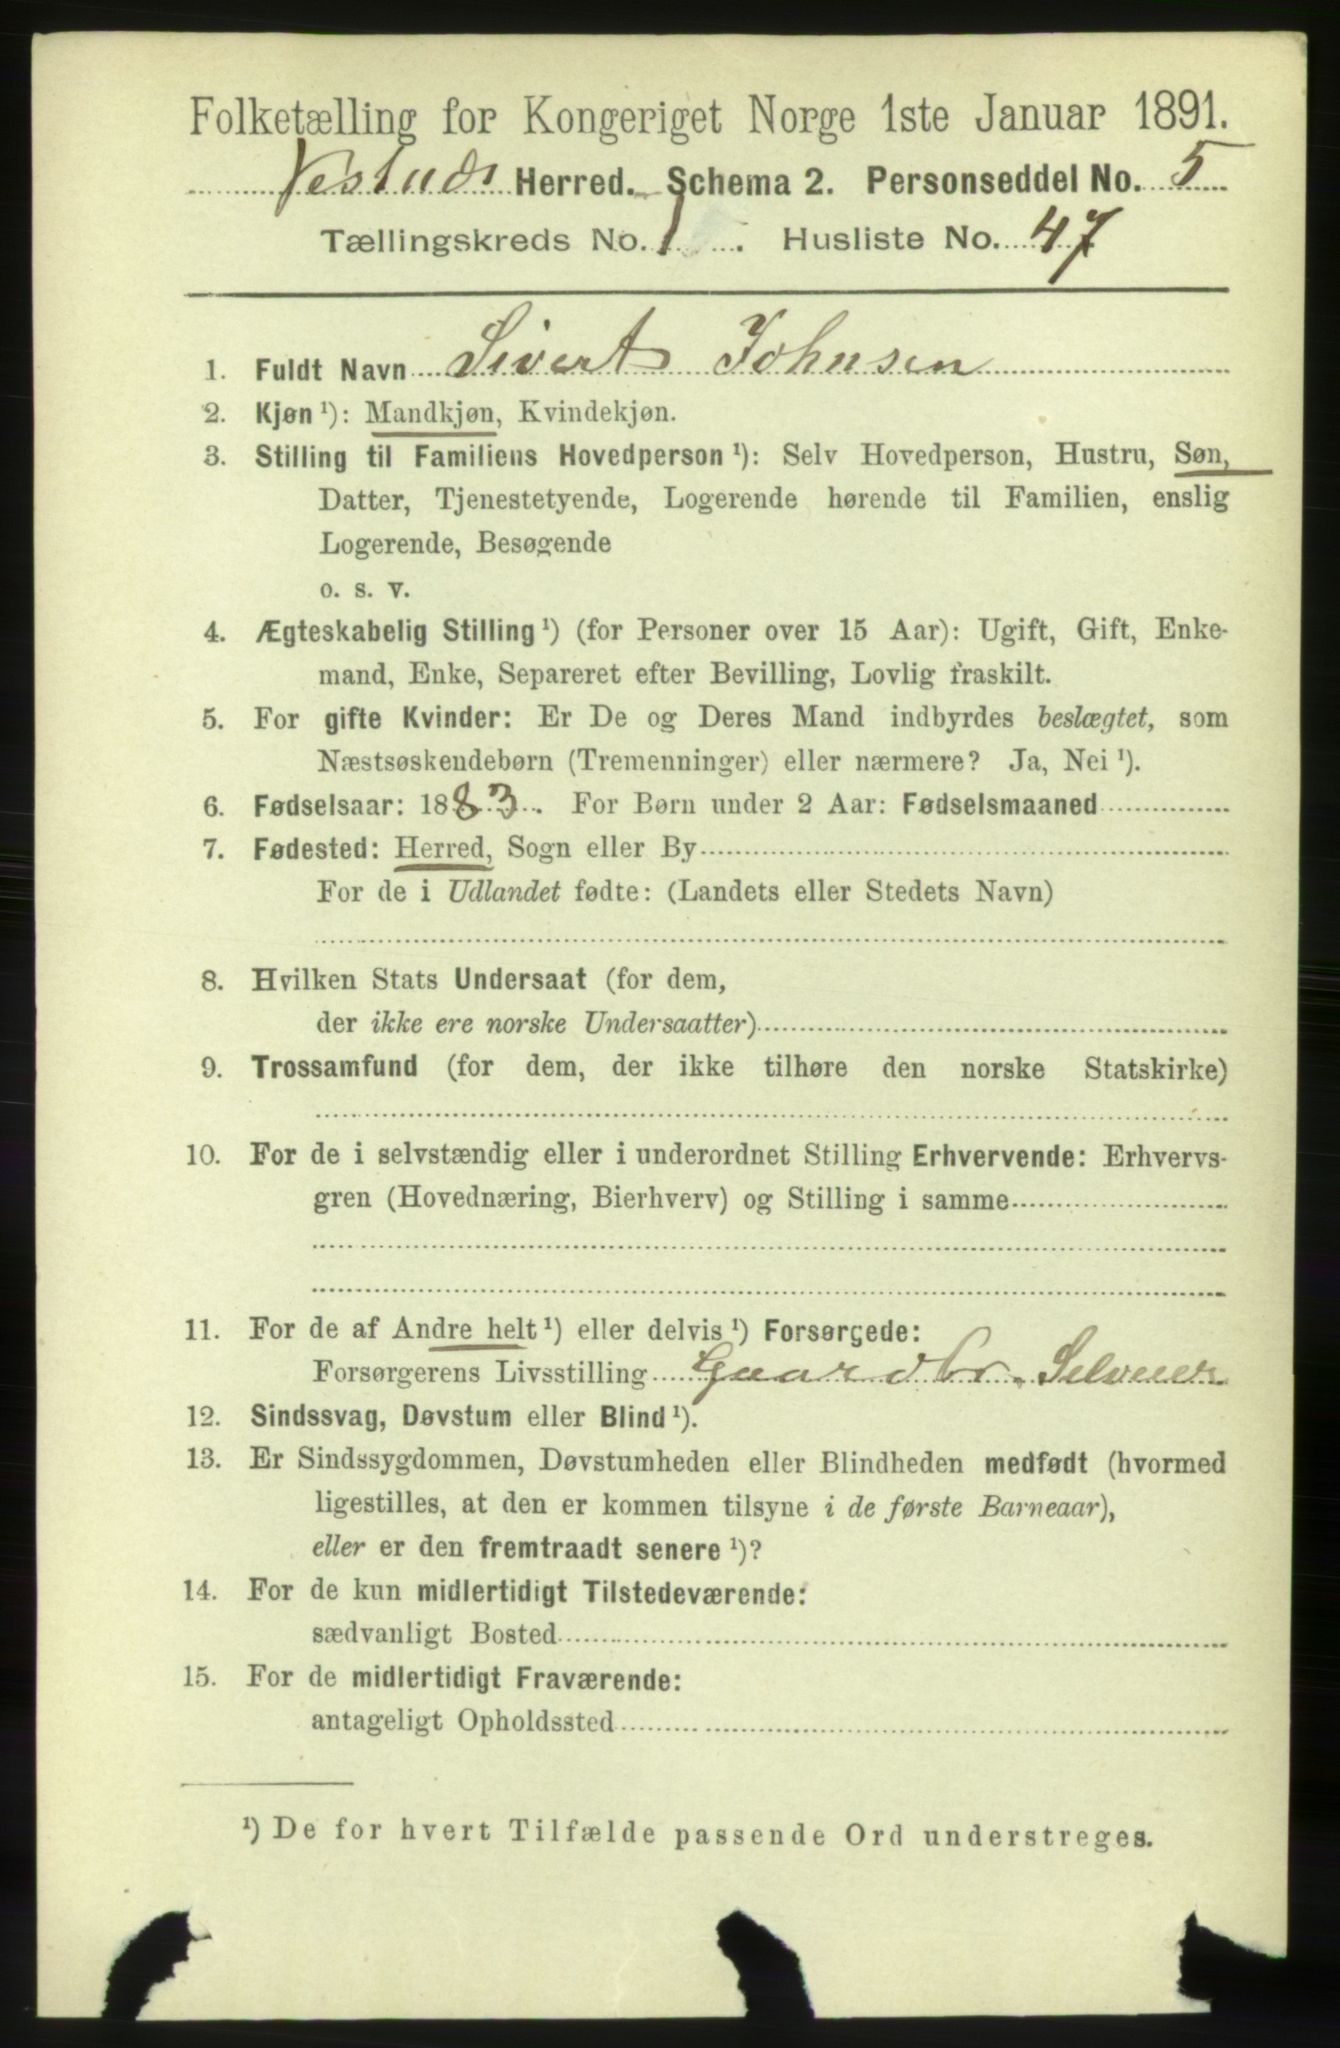 Folketælling for Kongeriget Norge 1ste Januar 1891.
Vestnæs Herred. Schema 2. Personseddel No. 5
Tællingskreds No. 1. Husliste No. 47
1. Fuldt Navn Sivert Johnsen
2. Kjøn ¹): Mandkjøn, Kvindekjøn.
3. Stilling til Familiens Hovedperson ¹): Selv Hovedperson, Hustru, Søn,
Datter, Tjenestetyende, Logerende hørende til Familien, enslig
Logerende, Besøgende
o. s. v.
4. Ægteskabelig Stilling ¹) (for Personer over 15 Aar): Ugift, Gift, Enke-
mand, Enke, Separeret efter Bevilling, Lovlig fraskilt.
5. For gifte Kvinder: Er De og Deres Mand indbyrdes beslægtet, som
Næstsøskendebørn (Tremenninger) eller nærmere? Ja, Nei ¹).
6. Fødselsaar: 1883. For Børn under 2 Aar: Fødselsmaaned
7. Fødested: Herred, Sogn eller By
For de i Udlandet fødte: (Landets eller Stedets Navn)
8. Hvilken Stats Undersaat (for dem,
der ikke ere norske Undersaatter)
9. Trossamfund (for dem, der ikke tilhøre den norske Statskirke)
10. For de i selvstændig eller i underordnet Stilling Erhvervende: Erhvervs-
gren (Hovednæring, Bierhverv) og Stilling i samme
11. For de af Andre helt ¹) eller delvis ¹) Forsørgede:
Forsørgerens Livsstilling Gaardbr. Selveier
12. Sindssvag, Døvstum eller Blind ¹).
13. Er Sindssygdommen, Døvstumheden eller Blindheden medfødt (hvormed
ligestilles, at den er kommen tilsyne i de første Barneaar),
eller er den fremtraadt senere ¹)?
14. For de kun midlertidigt Tilstedeværende:
sædvanligt Bosted
15. For de midlertidigt Fraværende:
antageligt Opholdssted
¹) De for hvert Tilfælde passende Ord understreges.